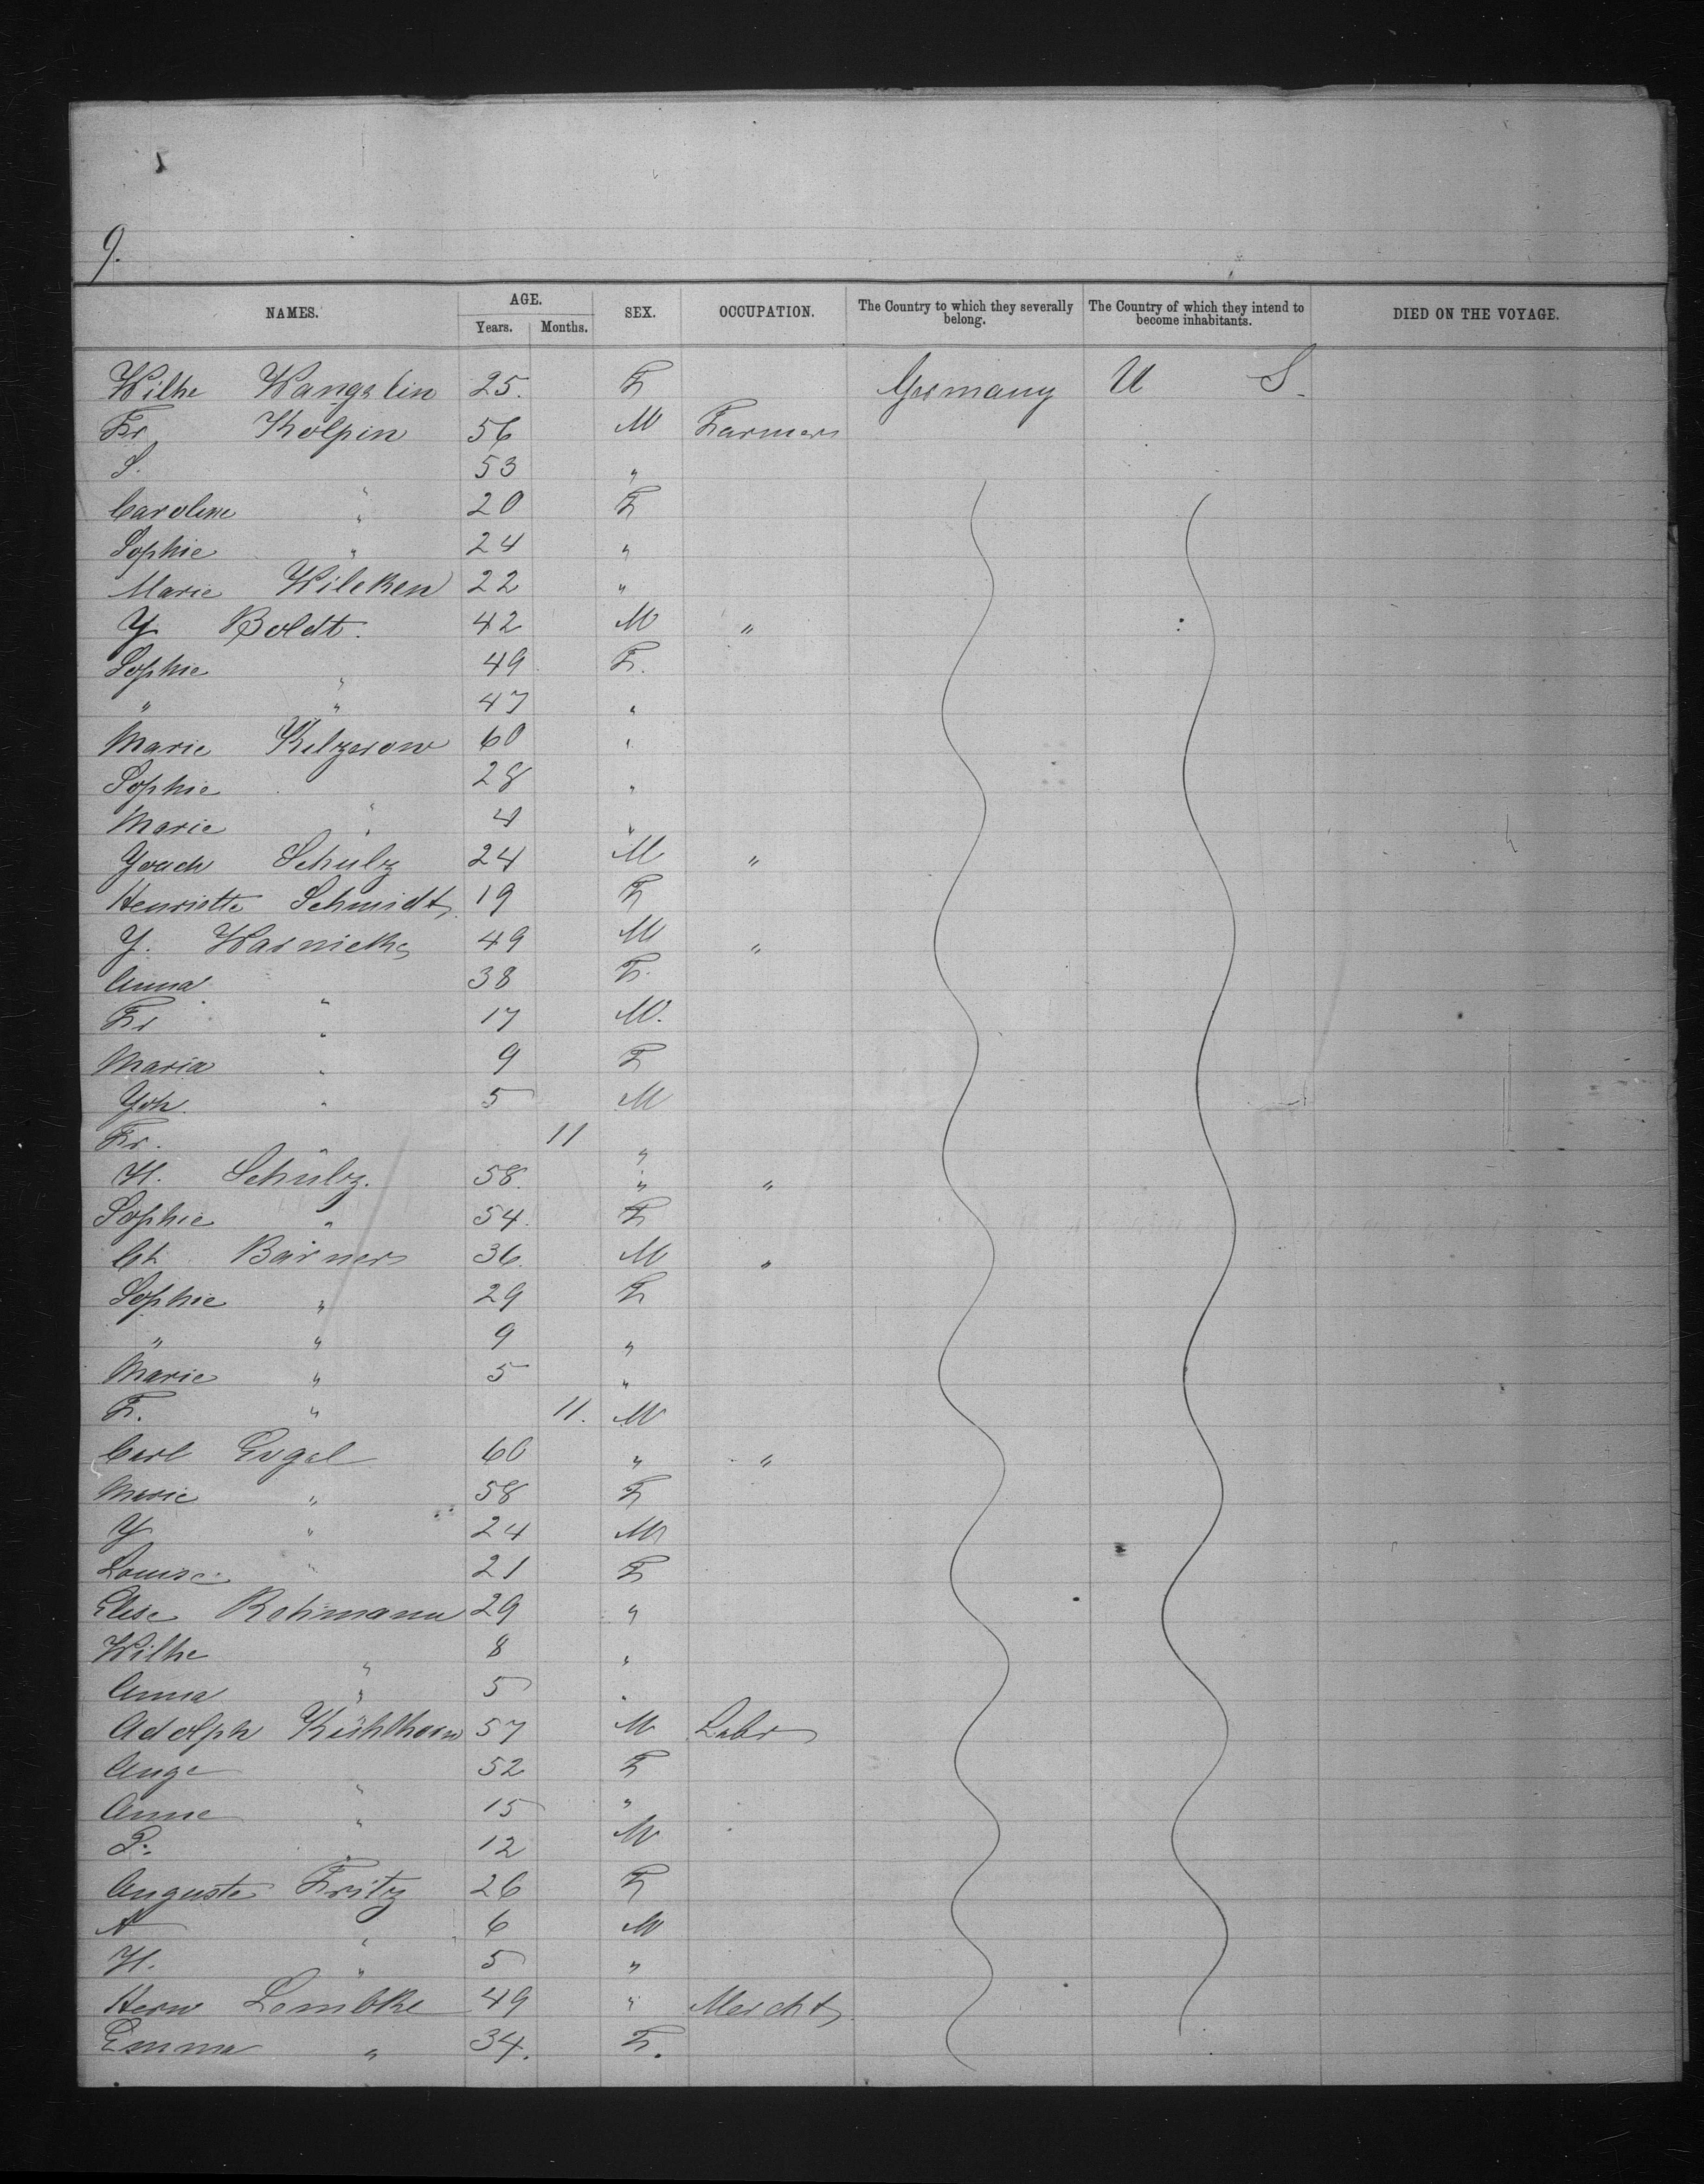 9.
NAMES. AGE. Years. Months. SEX. OCCUPATION. The Country to which they severally belong. The Country of which they intend to become inhabitants. DIED ON THE VOYAGE.
Wilhe Wangelin 25. F Germany U S.
Fr Kölpin 56 M Farmer
S. " 53 "
Caroline " 20 F
Sophie " 24 "
Marie Wilcken 22 "
J Boldt. 42 M "
Sophie " 49 F.
" " 47 "
Marie Kilzerow 60 "
Sophie " 28 "
Marie " 4 "
Joach Schulz 24 M "
Henriette Schmidt 19 F
J. Warnicke 49 M "
Anna " 38 F.
Fr " 17 M.
Maria " 9 F
Joh. " 5 M
Fr. " 11 "
H. Schulz. 58. " "
Sophie " 54. F
Ch. Bärner 36. M "
Sophie " 29 F
" " 9 "
Marie " 5 "
F. " 11. M
Carl Engel 60 " "
Marie " 58 F
J " 24 M
Louise " 21 F
Elise Rohmann 29 "
Wilhe " 8 "
Anna " 5 "
Adolph Kühlhorn 57 M Labr
Auge " 52 F
Anne " 15 "
P. " 12 M
Auguste Fritz 26 F
A " 6 M
H. " 5 "
Herm Lembke 49 " Mercht
Emma " 34. F.